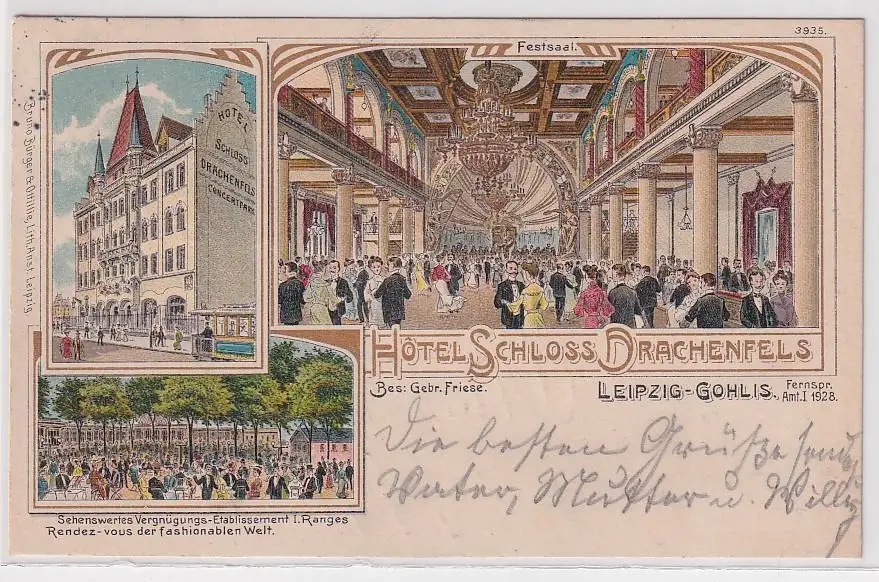 3935.
Festsaal.
HOTEL
SCHLOSS
DRACHENFELS
CONCERTPARK
Bruno Bürger & Ottillie, Lith. Anst. Leipzig
HÔTEL SCHLOSS DRACHENFELS
Bes: Gebr. Friese.
LEIPZIG-GOHLIS.
Fernspr.
Amt. I 1928.
Die besten Grüße send
Vater, Mutter u. Willy
Sehenswertes Vergnügungs-Etablissement I. Ranges
Rendez-vous der fashionablen Welt.